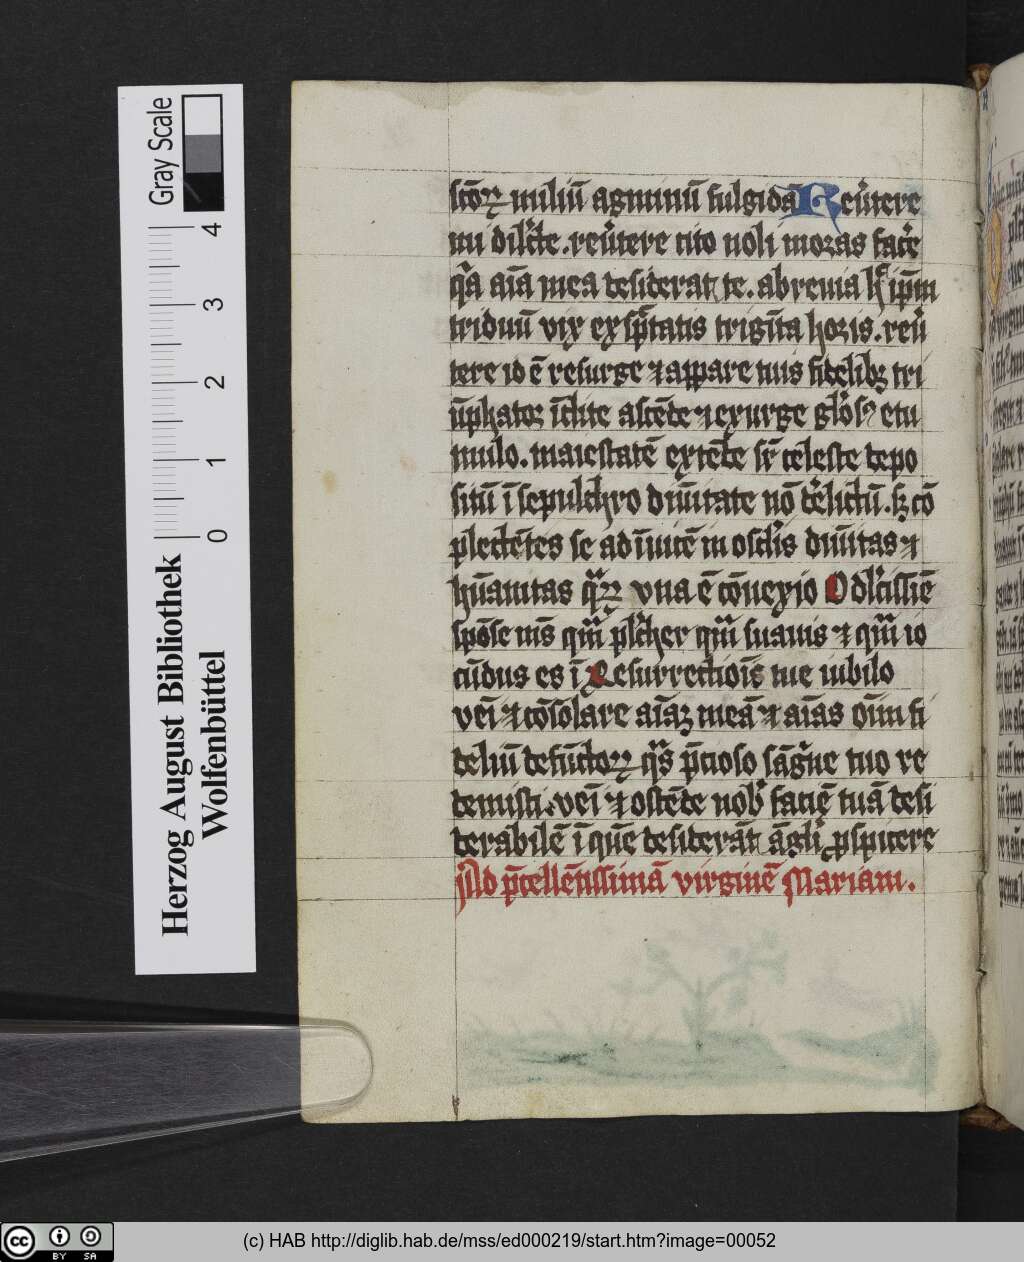 Gray Scale
4
3
2
1
0
Herzog August Bibliothek
Wolfenbüttel
sctōꝝ miliū agminū fulgida Reūtere
mi dilc̄te. reūtere cito noli moras facē
qa aīa mea desiderat te. abrenia ip̄m
triduū vix exsp̄tatis trigīta horis. reū
tere io ē resurge ⁊ appare tuis fidelibꝫ tri
ūphator īclite ascēde ⁊ exurge glōs etu
mulo. maiestatē extēde sr̄ celeste depo
sitū ī sepulchro diuītate nō dēlictū. sꝫ cō
plectētes se adīuicē in osclīs diuītas ⁊
hūanitas qꝝ vna ē cōuexio O dlcissiē
spōse mīs qm̄ plcher qm̄ suauis ⁊ qm̄ io
cūdus es ī Resurrectiōis tue iubilo
veī ⁊ cōsolare aīaꝫ meā ⁊ aīas oīm fi
deliū defūctoꝝ qs p̄cioso sāgne tuo re
demisti. veī ⁊ ostēde nob faciē tuā desi
derabilē ī quē desiderāt āgli ꝓspicere
Ad p̄cellētissimā virginē Mariam.
(c) HAB http://diglib.hab.de/mss/ed000219/start.htm?image=00052
cc BY SA